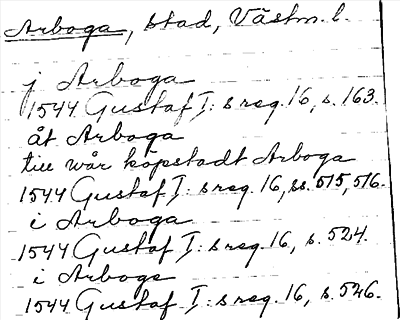 Arboga, stad, Västm. l.
j Arboga
1544 Gustaf I: s reg. 16, s. 163.
åt Arboga
till wår köpstadt Arboga
1544 Gustaf I: s reg. 16, ss. 515, 516.
i Arboga
1544 Gustaf I: s reg. 16, s. 524.
i Arboge
1544 Gustaf I: s reg. 16, s. 526.